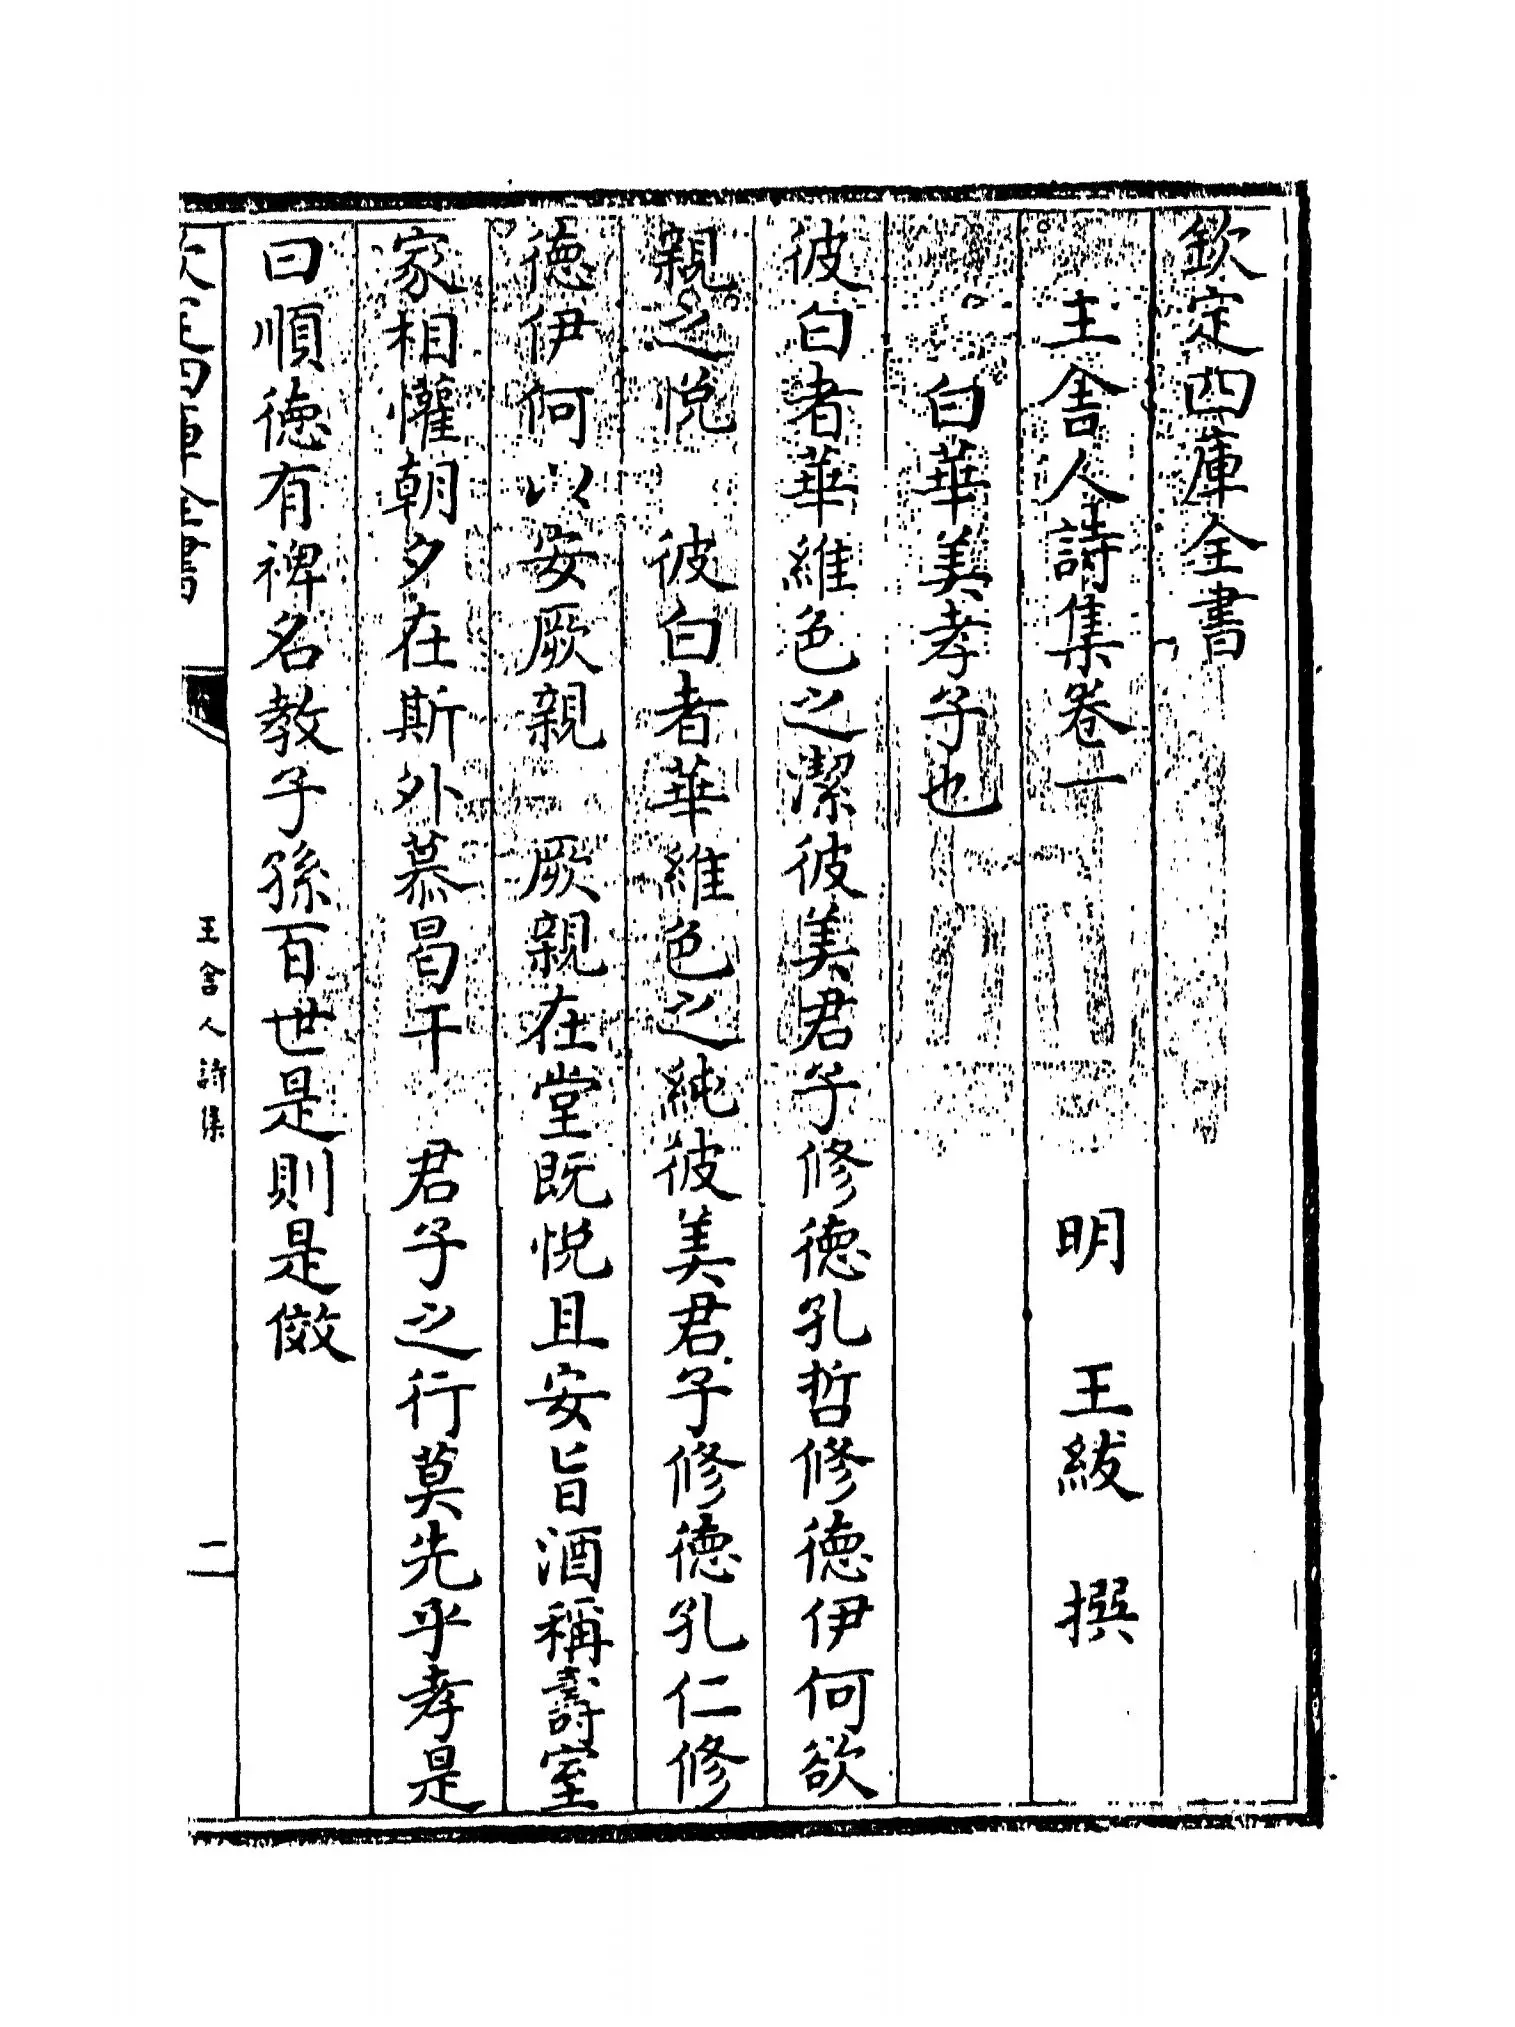 欽定四庫全書
王舍人詩集卷一　明　王紱　撰
白華美孝子也
彼白者華維色之潔彼美君子修徳孔哲修徳伊何欲
親之悅　彼白者華維色之純彼美君子修徳孔仁修
徳伊何以安厥親　厥親在堂既悅且安旨酒稱壽室
家相懽朝夕在斯外慕曷干　君子之行莫先乎孝是
曰順徳有裨名教子孫百世是則是傚
欽定四庫全書
王舍人詩集
二